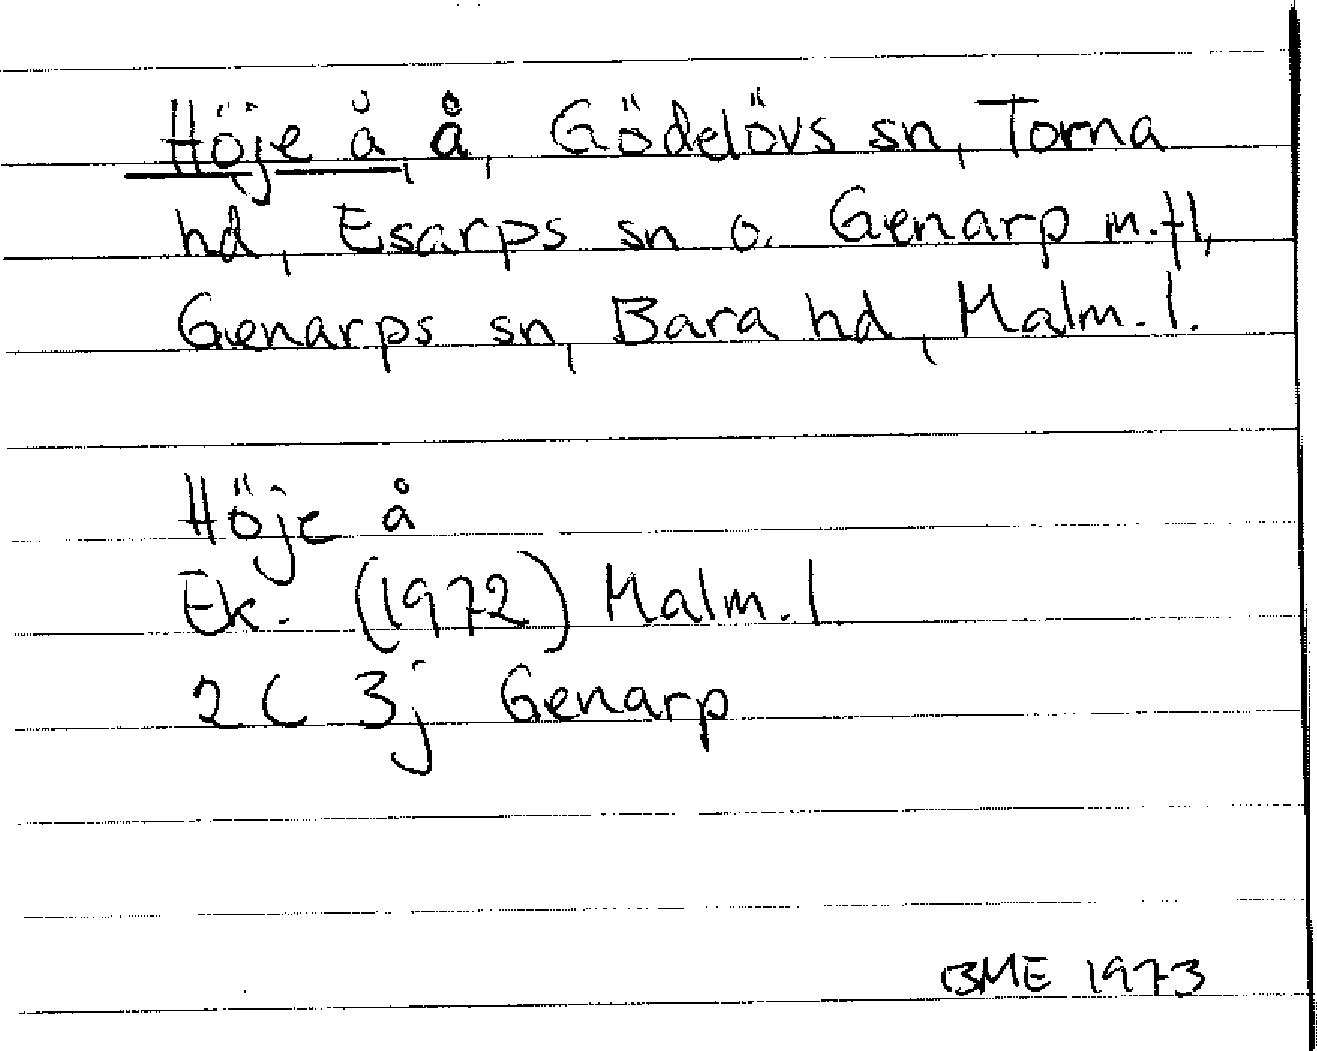 Höje å, å, Gödelövs sn, Torna
hd, Esarps sn o. Genarp m.fl,
Genarps sn, Bara hd, Malm. l.
Höje å
Ek. (1972) Malm. l
2C 3j Genarp
BME 1973